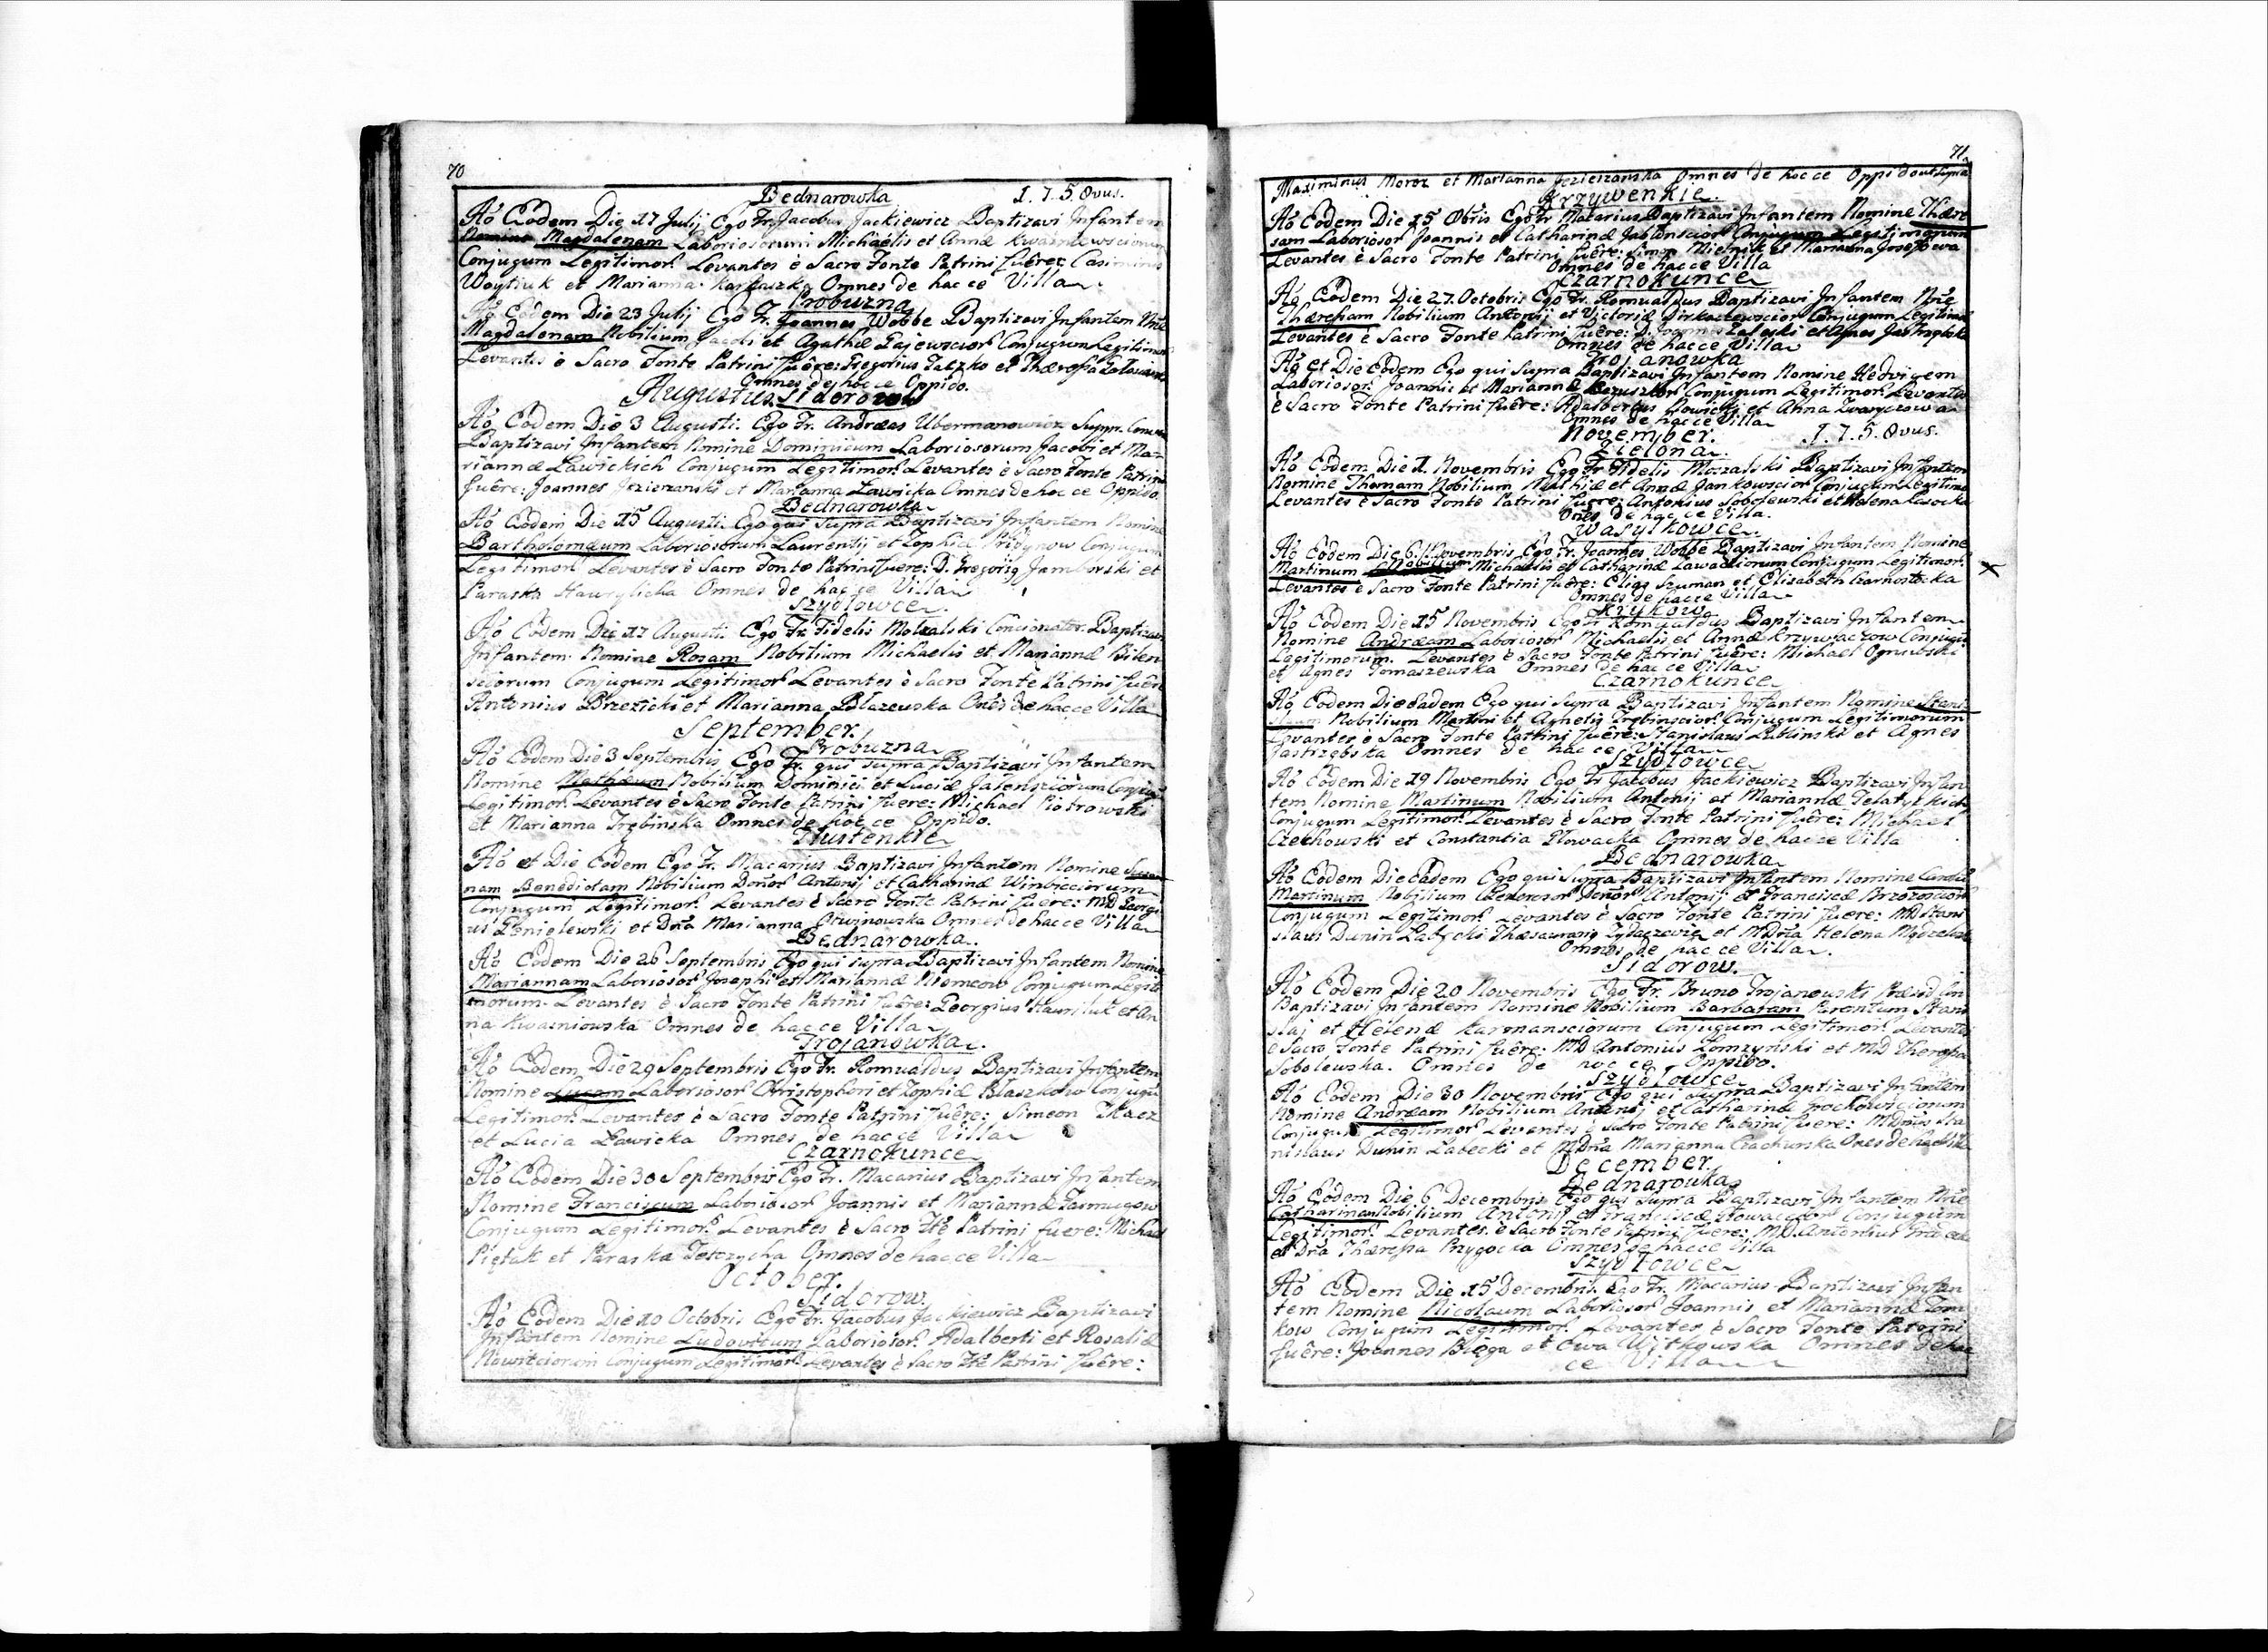 70
Bednarowka 1.7.5.0vus.
Aõ Eodem Die 17 Julij Ego Fr. Jacobus Jackiewicz Baptizavi Infantem
Nomine Magdalenam Laboriosorum Michaelis et Annæ Kwasniewsciorum
Conjugum Legitimor. Levantes è Sacro Fonte Patrini fuêre: Casimirus
Woytiuk et Marianna Omnes de hac ce Villa
Probuzna
Aõ Eodem Die 23 Julij Ego Fr. Joannes Wobbe Baptizavi Infantem Nñe
Magdalenam Nobilium Jacobi et Agathæ Gajewscior. Conjugum Legitimor.
Levantes è Sacro Fonte Patrini fuêre: Gregorius et Thæresia
Omnes de hoc ce Oppido.
Augustus. Sidorow
Aõ Eodem Die 3 Augusti. Ego Fr. Andræas Ubermanowicz
Baptizavi Infantem Nomine Dominicum Laboriosorum Jacobi et Ma
riannæ Ławickich Conjugum Legitimor. Levantes è Sacro Fonte Patrini
fuêre: Joannes Jezierzanski et Marianna Ławicka Omnes de hoc ce Oppido.
Bednarowka
Aõ Eodem Die 15 Augusti. Ego qui supra Baptizavi Infantem Nomine
Bartholomæum Laboriosorum Laurentij et Zophiæ Conjugum
Legitimor. Levantes è Sacro Fonte Patrini fuere: D. Gregorig Jamborski et
Paraska Hawrylicha Omnes de hac ce Villa
Szydlowce.
Aõ Eodem Die 17 Augusti. Ego Fr. Fidelis Motzalski Concionator Baptizavi
Infantem Nomine Rosam Nobilium Michaelis et Mariannæ Bilen
sciorum Conjugum Legitimor. Levantes è Sacro Fonte Patrini fuêre
Antonius Brzezicki et Marianna Blazewska Oñes de hac ce Villa
September.
Probuzna
Aõ Eodem Die 3 Septembris Ego Fr. qui supra Baptizavi Infantem
Nomine Mathæum Nobilium Dominici et Luciæ Jalensciorum Conjugum
Legitimor. Levantes è Sacro Fonte Patrini fuere: Michael Piotrowski
et Marianna Trębinska Omnes de hoc ce Oppido.
Tłustenkie
Aõ et Die Eodem Ego Fr. Macarius Baptizavi Infantem Nomine Susan
nam Benedictam Nobilium Doñor. Antonij et Catharinæ Winbicciorum
Conjugum Legitimor. Levantes è Sacro Fonte Patrini fuere: MD Georgi
us et Dña Marianna Omnes de hac ce Villa
Bednarowka.
Aõ Eodem Die 26 Septembris Ego qui supra Baptizavi Infantem Nomine
Mariannam Laboriosor. Josephi et Mariannæ Niemcow Conjugum Legiti
morum. Levantes è Sacro Fonte Patrini fuêre: Georgius Hauriluk et An
na Kwasniowska Omnes de hac ce Villa
Trojanowka.
Aõ Eodem Die 29 Septembris Ego Fr. Romualdus Baptizavi Infantem
Nomine Lucam Laboriosor. Christophori et Zophiæ Błaszkow Conjugũ
Legitimor. Levantes è Sacro Fonte Patrini fuêre: Simeon Tkacz
et Lucia Ławicka Omnes de hac ce Villa
Czarnokunce
Aõ Eodem Die 30 Septembris Ego Fr. Macarius Baptizavi Infantem
Nomine Franciscum Laboriosor. Joannis et Mariannæ
Conjugum Legitimor. Levantes è Sacro Fte Patrini fuere: Michael
Piętak et Paraska Omnes de hac ce Villa
October.
Sidorow.
Aõ Eodem Die 10 Octobris Ego Fr. Jacobus Jackiewicz Baptizavi
Infantem Nomine Ludovicum Laboriosor. Adalberti et Rosaliæ
Nowitciorum Conjugum Legitimor. Levantes è Sacro Fte Patrini fuêre:
71
Maximinus Moroz et Marianna Jezierzanska Omnes de hoc ce Oppido ut supra
Krzywenkie.
Aõ Eodem Die 15 Obris Ego Fr Macarius Baptizavi Infantem Nomine Thære
sam Laboriosor Joannis et Catharinæ Jablonscior Conjugum Legitimorum
Levantes è Sacro Fonte Patrini fuêre: Simon Mielnik et Marianna Josefowa
Omnes de hac ce Villa
Czarnokunce
Aõ Eodem Die 27. Octobris Ego Fr. Romualdus Baptizavi Infantem Nñe
Thæresiam Nobilium Antonij et Victoriæ Conjugum Legitimor
Levantes è Sacro Fonte Patrini fuêre: D. Joannes Zaleski et Agnes Jastrzębska
Omnes de hac ce Villa
Trojanowka
Aõ et Die Eodem Ego qui supra Baptizavi Infantem Nomine Hedvigem
Laboriosor. Joannis et Mariannæ Conjugum Legitimor. Levantes
è Sacro Fonte Patrini fuêre: Adalbertus Nowicki et Anna Iwanczowa
Omnes de hac ce Villa
November. 1.7.5.0vus.
Zielona.
Aõ Eodem Die 1. Novembris Ego Fr Fidelis Moszalski Baptizavi Infantem
Nomine Thomam Nobilium Mathiæ et Annæ Jankowscior Conjugum Legitimor
Levantes è Sacro Fonte Patrini fuere: Antonius Sobolewski et Helena Lasocka
Oñes de hac ce Villa.
Wasylkowce.
Aõ Eodem Die 6. Novembris Ego Fr. Joannes Wobbe Baptizavi Infantem Nomine
Martinum Nobilium Michaelis et Catharinæ Lawadiorum Conjugum Legitimor.
Levantes è Sacro Fonte Patrini fuêre: Elias Szuman et Elisabeth Czarnostocka
Omnes de hac ce Villa
Krykow
Aõ Eodem Die 15 Novembris Ego Fr Romualdus Baptizavi Infantem
Nomine Andræam Laboriosor. Michaelis et Annæ Krzywaczow Conjugũ
Legitimorum. Levantes è Sacro Fonte Patrini fuêre: Michael Ogniwski
et Agnes Tomaszewska Omnes de hac ce Villa
Czarnokunce
Aõ Eodem Die Eadem Ego qui supra Baptizavi Infantem Nomine Stani
slaum Nobilium Martini et Agnetis Trębinscior. Conjugum Legitimorum
Levantes è Sacro Fonte Patrini fuêre: Stanislaus Lublinski et Agnes
Jastrzębska Omnes de hac ce Villa
Szydlowce
Aõ Eodem Die 19 Novembris Ego Fr Jacobus Jackiewicz Baptizavi Infan
tem Nomine Martinum Nobilium Antonij et Mariannæ
Conjugum Legitimor. Levantes è Sacro Fonte Patrini fuêre: Michael
Czechowski et Constantia Słowacka Omnes de hac ce Villa
Bednarowka
Aõ Eodem Die Eadem Ego qui supra Baptizavi Infantem Nomine
Martinum Nobilium Generosor Doñor. Antonij et Franciscæ
Conjugum Legitimor. Levantes è Sacro Fonte Patrini fuere: MD Stani
slaus Dunin et MDña Helena
Omnes de hac ce Villa.
Sidorow.
Aõ Eodem Die 20 Novembris Ego Fr. Bruno Trojanowski
Baptizavi Infantem Nomine Nobilium Barbaram Parentum Stani
slaj et Helenæ Karmansciorum Conjugum Legitimor. Levantes
è Sacro Fonte Patrini fuêre: MD Antonius Łomzynski et MD Theresia
Sobolewska. Omnes de hoc ce Oppido.
Szydlowce
Aõ Eodem Die 30 Novembris Ego qui supra Baptizavi Infantem
Nomine Andræam Nobilium Antonij et Catharinæ
Conjugum Legitimor Levantes è Sacro Fonte Patrini fuere: MDñus Sta
nislaus Dunin Łabecki et MDña Marianna Oñes de hac ce Villa
December.
Bednarowka
Aõ Eodem Die 6 Decembris Ego qui supra Baptizavi Infantem Nñe
Catharinam Nobilium Antonij et Franciscæ Conjugum
Legitimor. Levantes è Sacro Fonte Patrini fuere: MD. Antonius
et Dña Thæresia Przygocka Omnes de hac ce Villa
Szydlowce
Aõ Eodem Die 15 Decembris Ego Fr. Macarius Baptizavi Infan
tem Nomine Nicolaum Laboriosor Joannis et Mariannæ Tom
kow Conjugum Legitimor. Levantes è Sacro Fonte Patrini
fuêre: Joannes Biega et Ewa Witkowska Omnes de hac
ce Villa